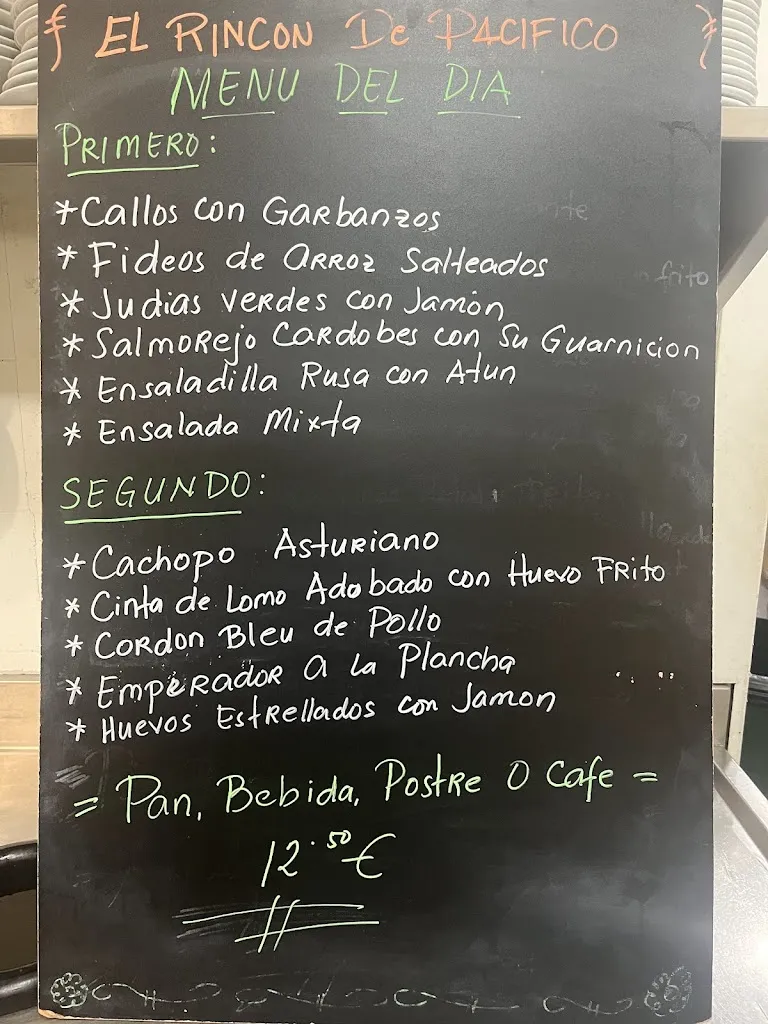 EL RINCON De PACIFICO
MENU DEL DIA
PRIMERO:
* Callos con Garbanzos
* Fideos de Arroz Salteados
* Judias Verdes con Jamón
* Salmorejo Cardobes con Su Guarnicion
* Ensaladilla Rusa con Atun
* Ensalada Mixta
SEGUNDO:
* Cachopo Asturiano
* Cinta de Lomo Adobado con Huevo Frito
* Cordon Bleu de Pollo
* Emperador a la Plancha
* Huevos Estrellados con Jamon
= Pan, Bebida, Postre O Cafe =
12.50 €